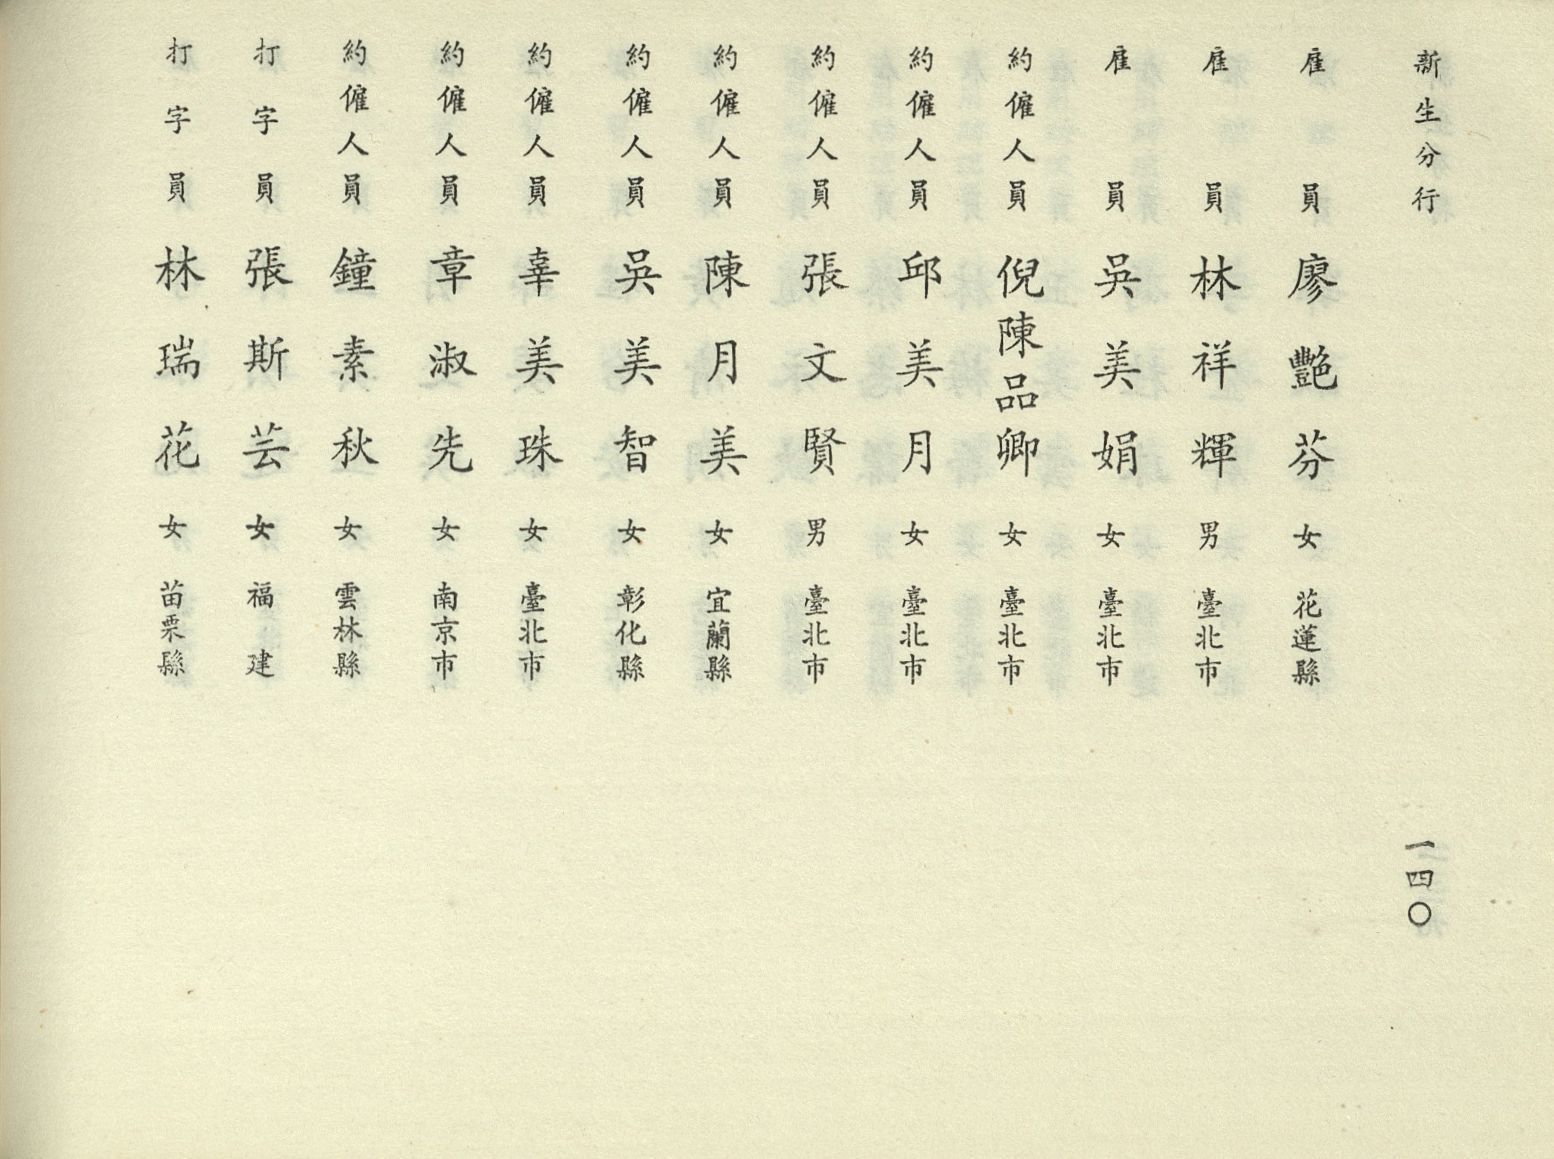 新生分行
一四〇
雇員 廖艷芬 女 花蓮縣
雇員 林祥輝 男 臺北市
雇員 吳美娟 女 臺北市
約僱人員 倪陳品卿 女 臺北市
約僱人員 邱美月 女 臺北市
約僱人員 張文賢 男 臺北市
約僱人員 陳月美 女 宜蘭縣
約僱人員 吳美智 女 彰化縣
約僱人員 辜美珠 女 臺北市
約僱人員 章淑先 女 南京市
約僱人員 鐘素秋 女 雲林縣
打字員 張斯芸 女 福建
打字員 林瑞花 女 苗栗縣